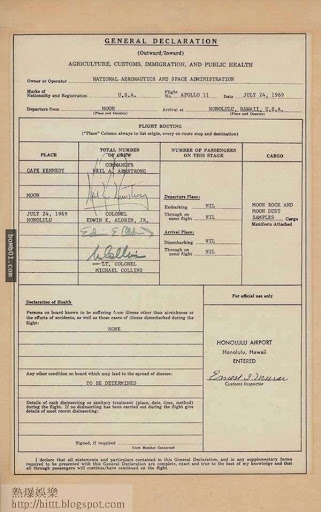 GENERAL DECLARATION
(Outward/Inward)
AGRICULTURE, CUSTOMS, IMMIGRATION, AND PUBLIC HEALTH
Owner or Operator NATIONAL AERONAUTICS AND SPACE ADMINISTRATION
Marks of Nationality and Registration U.S.A. Flight No. APOLLO 11 Date JULY 24, 1969
Departure from MOON Arrival at HONOLULU, HAWAII, U.S.A.
(Place and Country) (Place and Country)
FLIGHT ROUTING
("Place" Column always to list origin, every en-route stop and destination)
PLACE TOTAL NUMBER OF CREW NUMBER OF PASSENGERS ON THIS STAGE CARGO
CAPE KENNEDY
COMMANDER
NEIL A. ARMSTRONG
MOON
JULY 24, 1969
HONOLULU
COLONEL
EDWIN E. ALDRIN, JR.
LT. COLONEL
MICHAEL COLLINS
Departure Place:
Embarking NIL
Through on same flight NIL
Arrival Place:
Disembarking NIL
Through on same flight NIL
MOON ROCK AND
MOON DUST
SAMPLES Cargo
Manifests Attached
Declaration of Health
Persons on board known to be suffering from illness other than airsickness or
the effects of accidents, as well as those cases of illness disembarked during the
flight:
NONE
Any other condition on board which may lead to the spread of disease:
TO BE DETERMINED
Details of each disinsecting or sanitary treatment (place, date, time, method)
during the flight. If no disinsecting has been carried out during the flight give
details of most recent disinsecting:
Signed, if required
Crew Member Concerned
For official use only
HONOLULU AIRPORT
Honolulu, Hawaii
ENTERED
Customs Inspector
I declare that all statements and particulars contained in this General Declaration, and in any supplementary forms
required to be presented with this General Declaration are complete, exact and true to the best of my knowledge and that
all through passengers will continue/have continued on the flight.
熱爆娛樂
http://hittt.blogspot.com